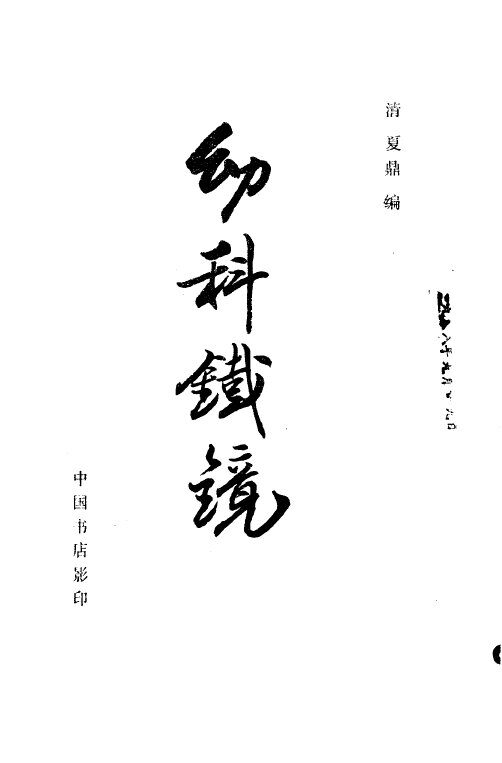 清 夏鼎 编
幼科鐵鏡
中国书店影印